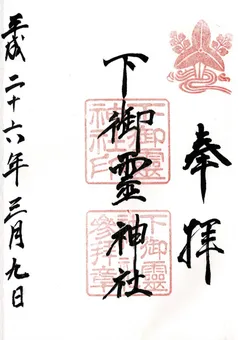 奉拝
下御靈神社
下御靈神社印
下御靈
参拝章
平成二十六年三月九日